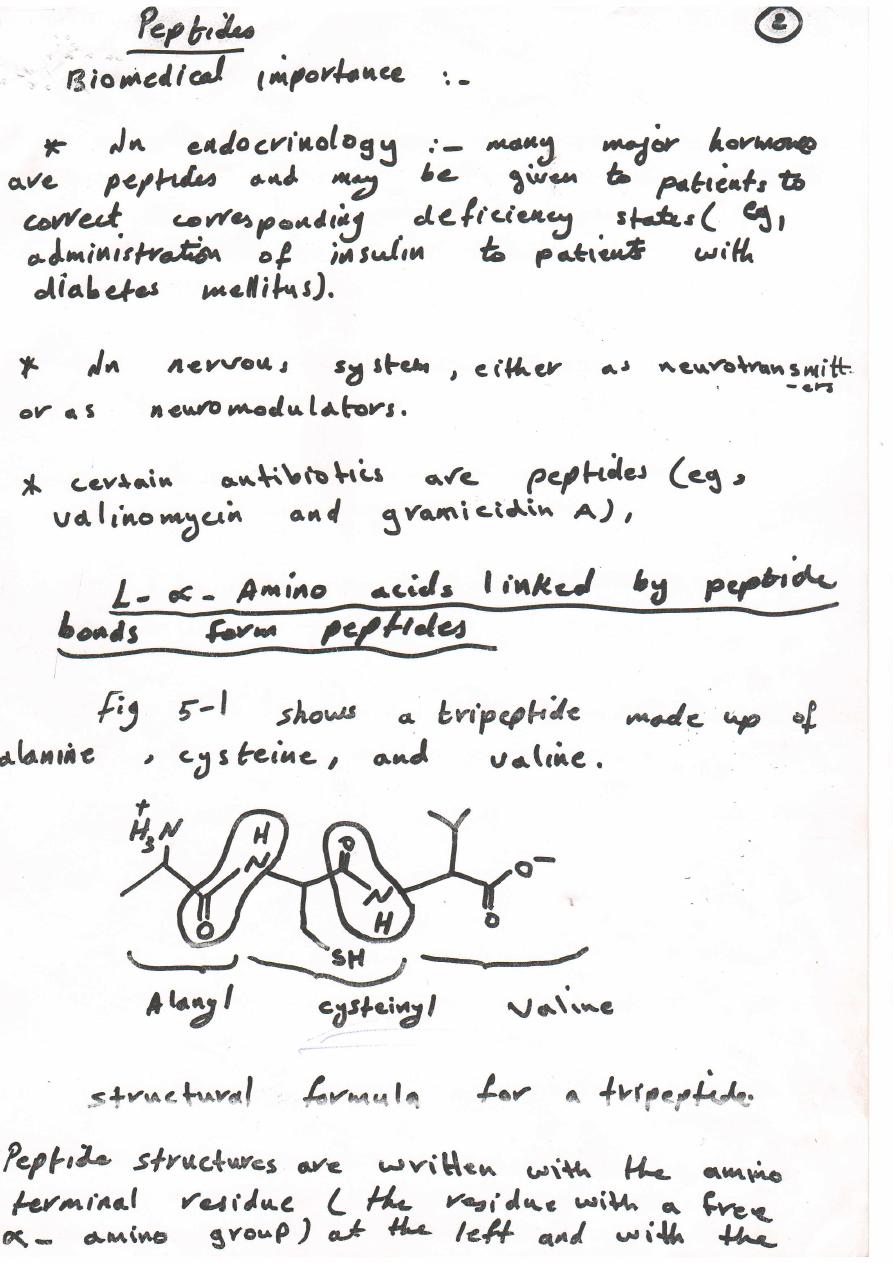 Peptides
2
Biomedical importance :-
* In endocrinology :- many major hormones
are peptides and may be given to patients to
correct corresponding deficiency states ( eg,
administration of insulin to patients with
diabetes mellitus).
* In nervous system, either as neurotransmitt
-ers
or as neuromodulators.
* certain antibiotics are peptides (eg,
valinomycin and gramicidin A),
L-α-Amino acids linked by peptide
bonds form peptides
Fig 5-1 shows a tripeptide made up of
alanine, cysteine, and valine.
+
H3N
H
N
O
O
N
H
SH
O-
O
Alanyl cysteinyl Valine
structural formula for a tripeptide.
Peptide structures are written with the amino
terminal residue ( the residue with a free
α- amino group) at the left and with the